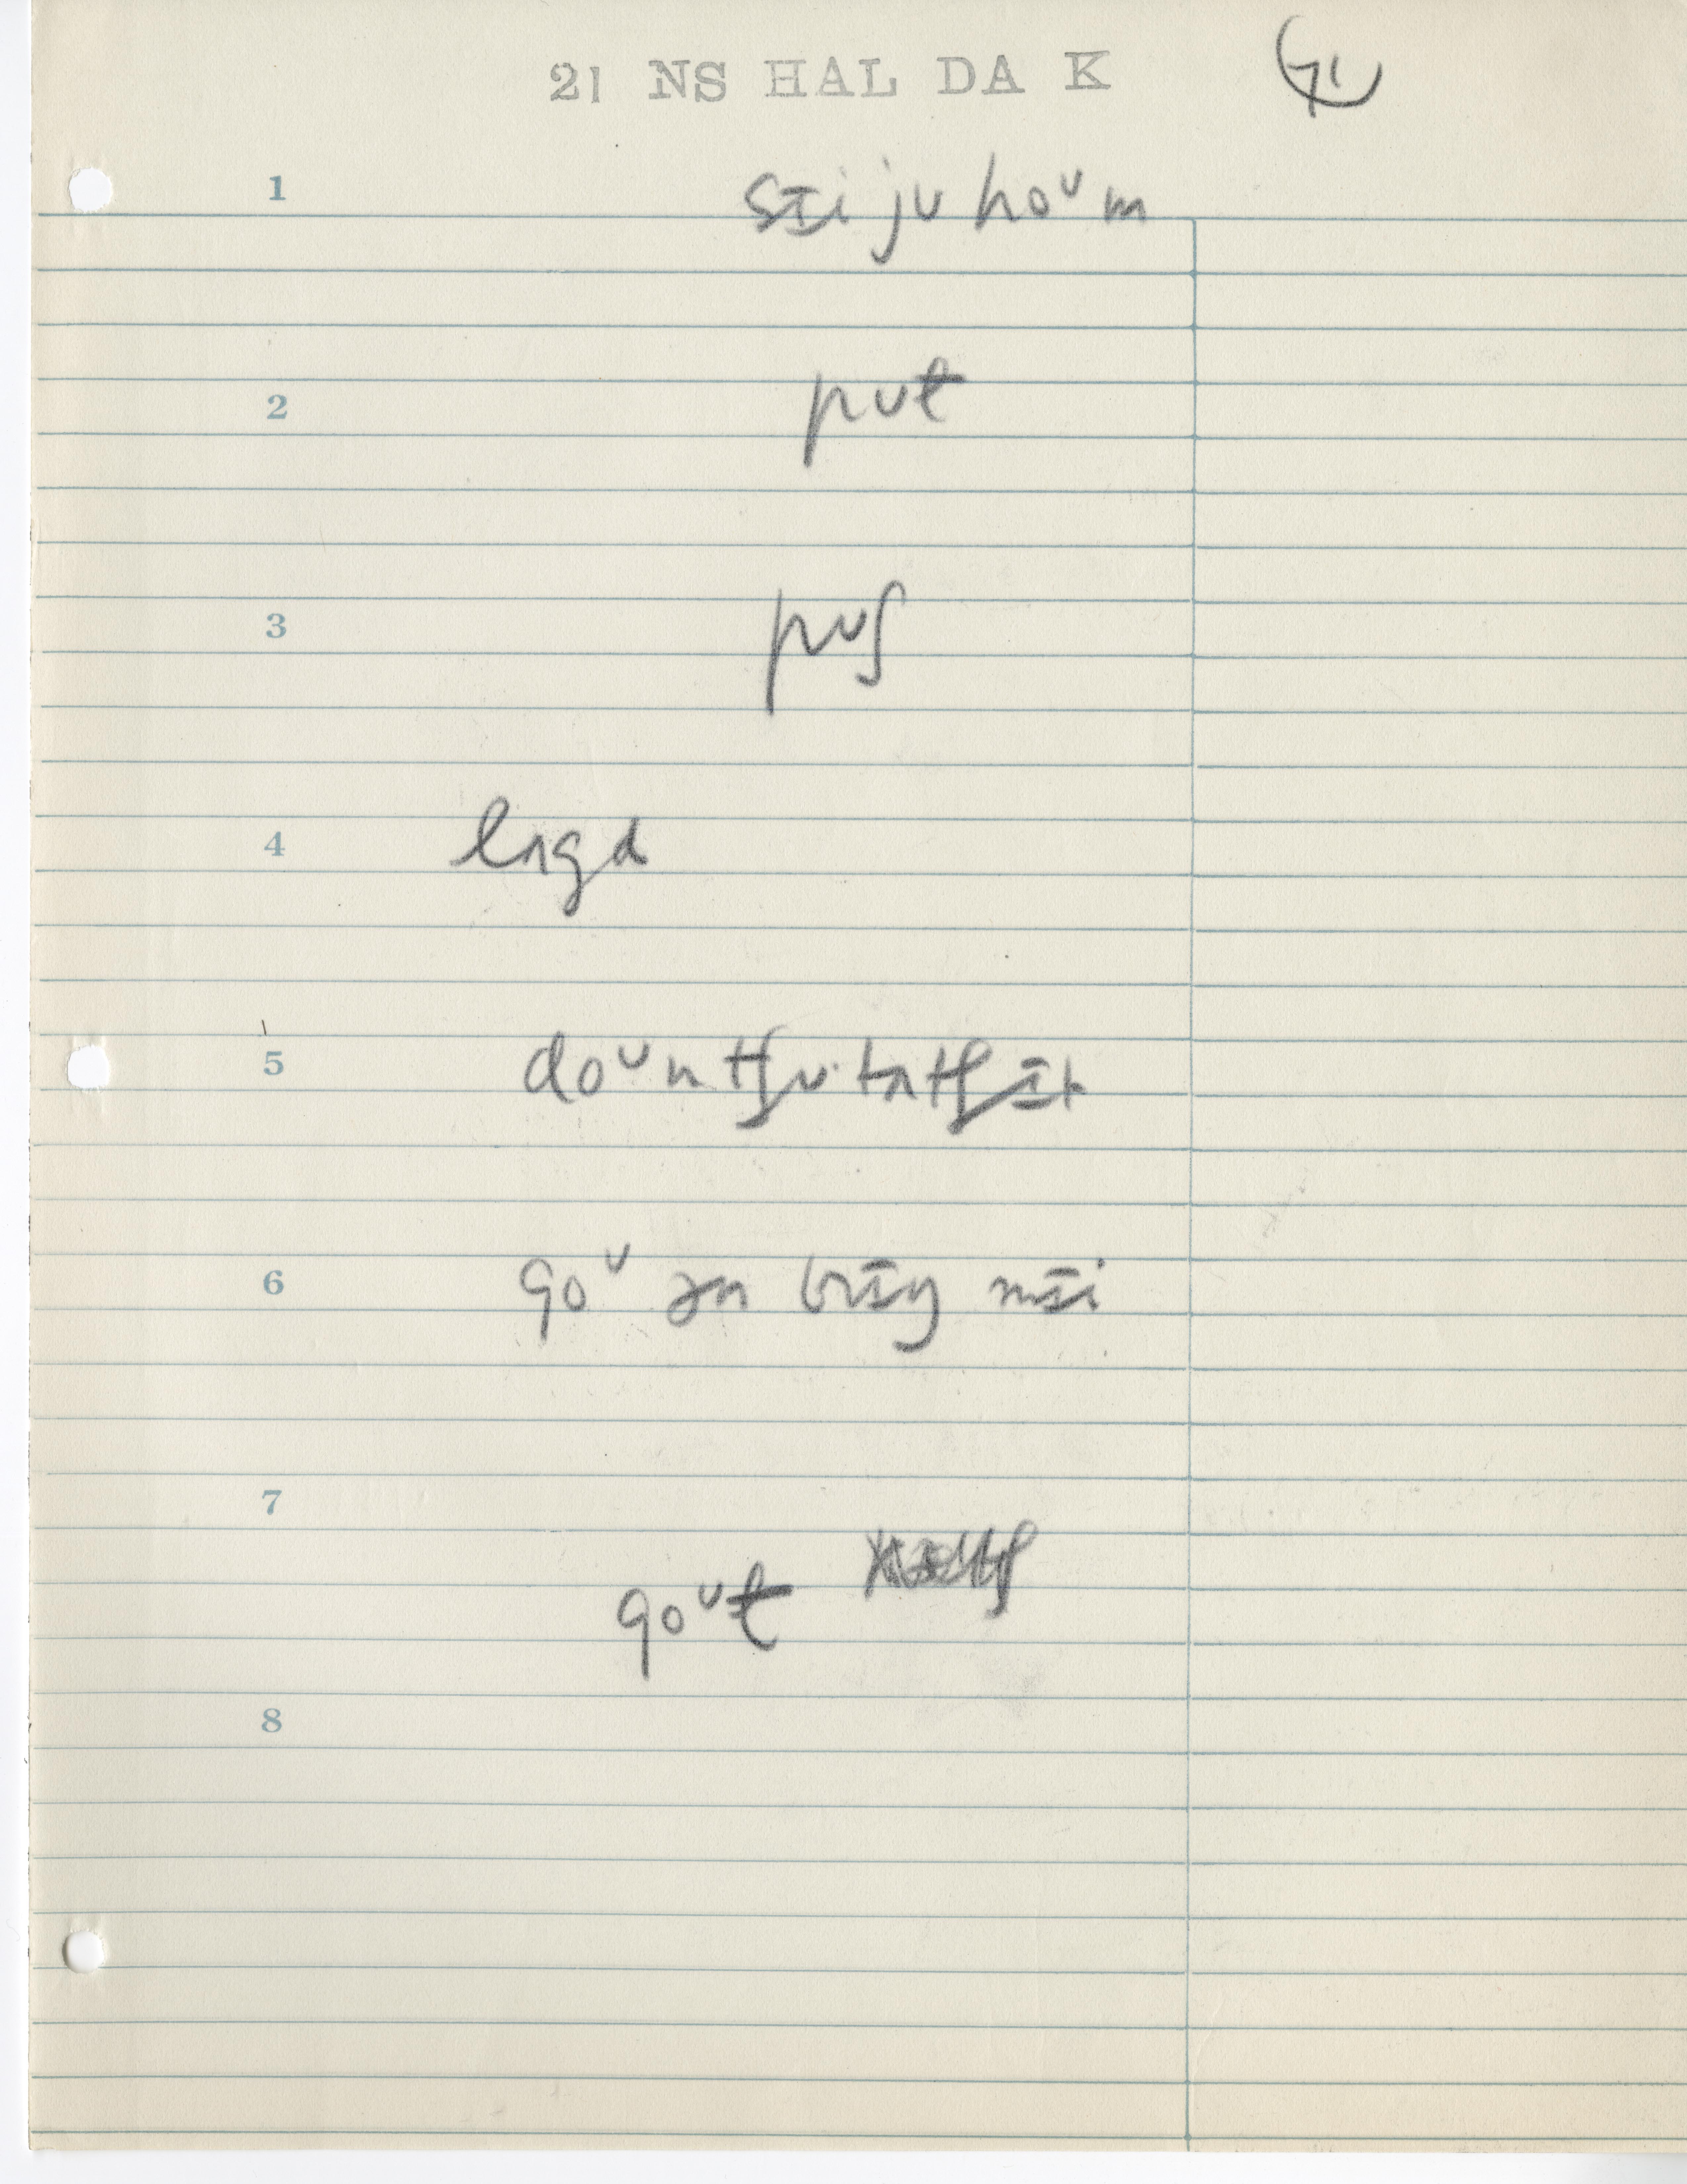 21 NS HAL DA K
71
1 sɪi ju hoᴜm
2 pᴜt
3 pᴜʃ
4 lʌgd
5 doᴜn tʃu tʌtʃ ɪt
6 goᴜ ən brɪŋ mɪi
7 goᴜt
8